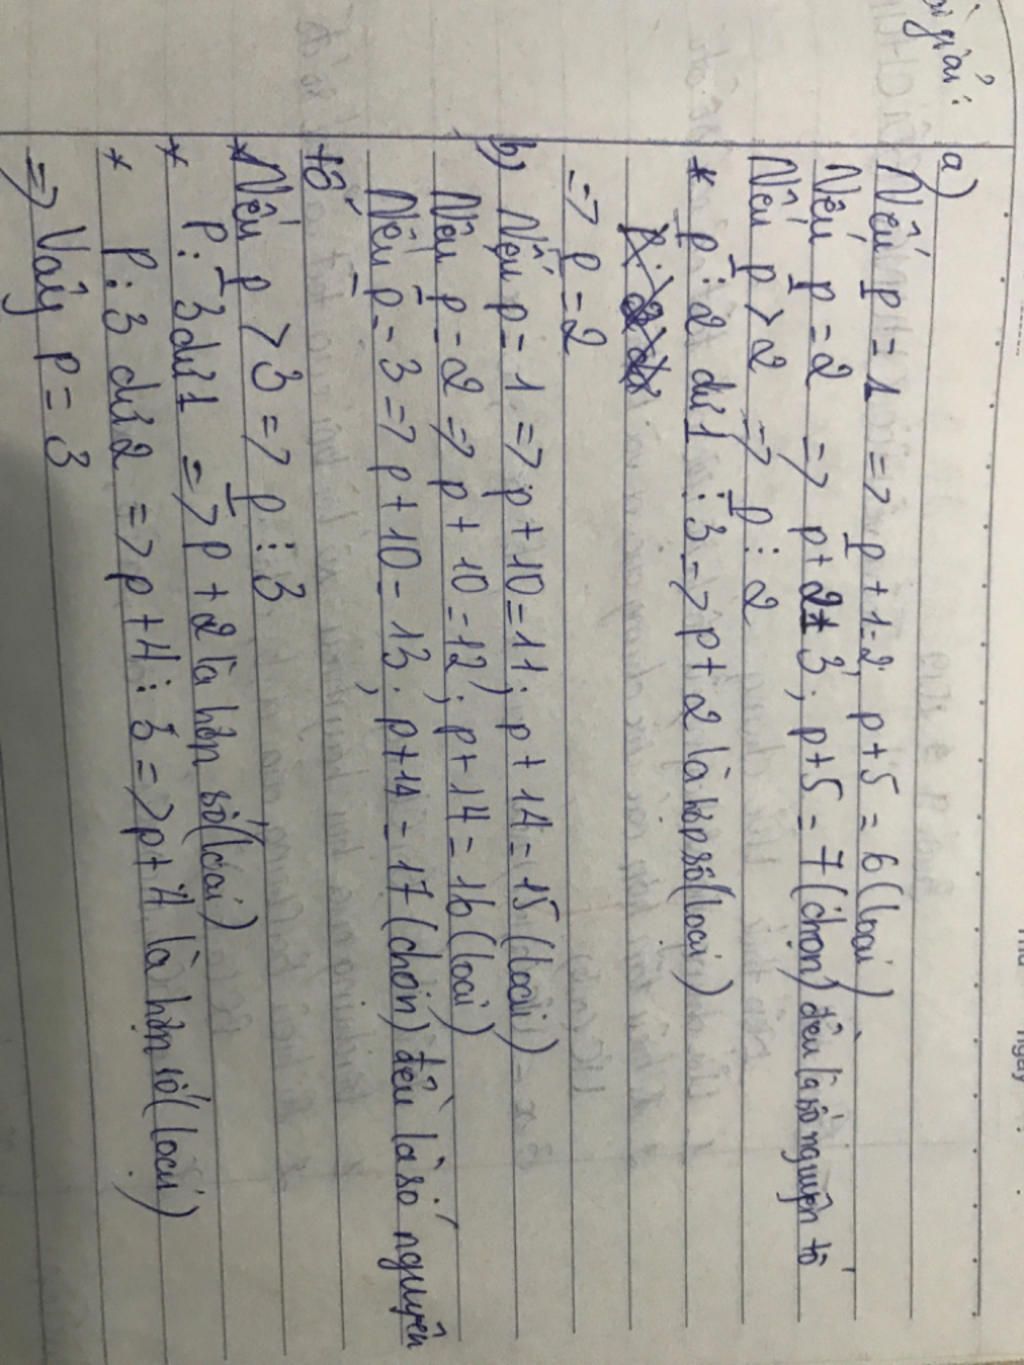 giải:
a)
Nếu p = 1 => p + 1 = 2; p + 5 = 6 (loại)
Nếu p = 2 => p + 2 = 3; p + 5 = 7 (chọn) đều là số nguyên tố
Nếu p > 2 => p : 2
* p : 2 dư 1 : 3 => p + 2 là hợp số (loại)
=> p = 2
b) Nếu p = 1 => p + 10 = 11; p + 14 = 15 (loại)
Nếu p = 2 => p + 10 = 12; p + 14 = 16 (loại)
Nếu p = 3 => p + 10 = 13; p + 14 = 17 (chọn) đều là số nguyên
tố
* Nếu p > 3 => p : 3
* P : 3 dư 1 => p + 2 là hợp số (loại)
* P : 3 dư 2 => p + 4 : 3 => p + 4 là hợp số (loại)
=> Vậy p = 3